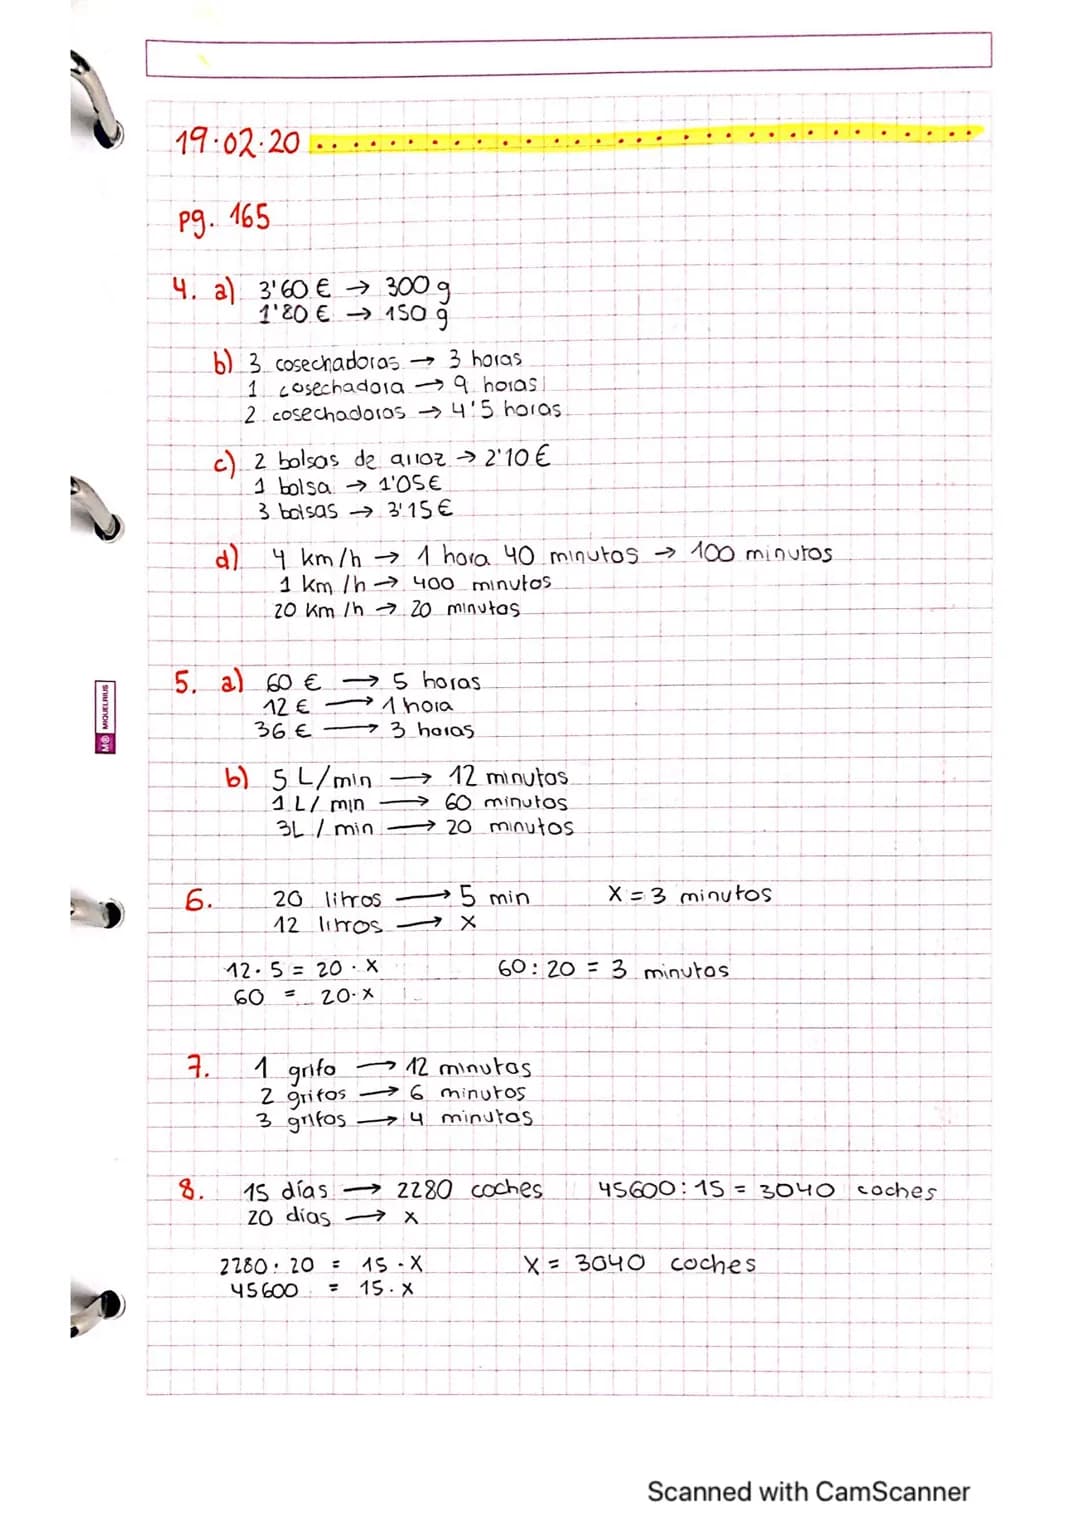 19·02·20
pg. 165
4. a) 3'60 € → 300 g
1'80 € → 150 g
b) 3 cosechadoras → 3 horas
1 cosechadora → 9 horas
2 cosechadoras → 4'5 horas
c) 2 bolsas de arroz → 2'10 €
1 bolsa → 1'05 €
3 bolsas → 3'15 €
d) 4 km/h → 1 hora 40 minutos → 100 minutos
1 km/h → 400 minutos
20 km/h → 20 minutos
5. a) 60 € → 5 horas
12 € → 1 hora
36 € → 3 horas
b) 5 L/min → 12 minutos
1 L/min → 60 minutos
3L/min → 20 minutos
M® MIQUELRIUS
6. 20 litros → 5 min X = 3 minutos
12 litros → x
12 · 5 = 20 · x 60 : 20 = 3 minutos
60 = 20·x
7. 1 grifo → 12 minutos
2 grifos → 6 minutos
3 grifos → 4 minutos
8. 15 días → 2280 coches 45600 : 15 = 3040 coches
20 días → x
2280 · 20 = 15 · X X = 3040 coches
45600 = 15 · x
Scanned with CamScanner